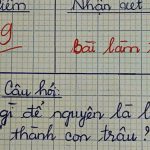 iểm Nhận xét
9 bài làm
Câu hỏi:
gì để nguyên là l
thành con trâu?